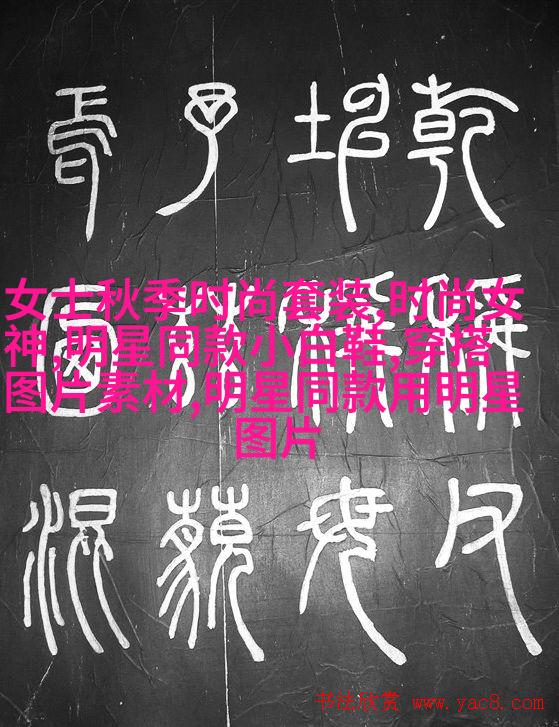 女士秋季时尚套装,时尚女
神,明星同款小白鞋,穿搭
图片素材,明星同款用明星
图片
乾稱父
坤稱母
予茲藐
焉混
书法欣赏 www.yac8.com